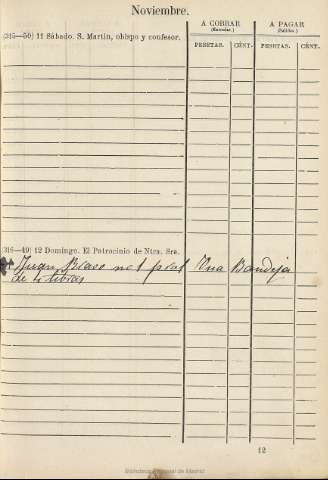 Noviembre.
A COBRAR
(Entradas.)
A PAGAR
(Salidas.)
PESETAS. CÉNT. PESETAS. CÉNT.
[315—50] 11 Sábado. S. Martín, obispo y confesor.
[316—49] 12 Domingo. El Patrocinio de Ntra. Sra.
Juan Blaco Una Bandeja
de 4 libras
12
Biblioteca Regional de Madrid